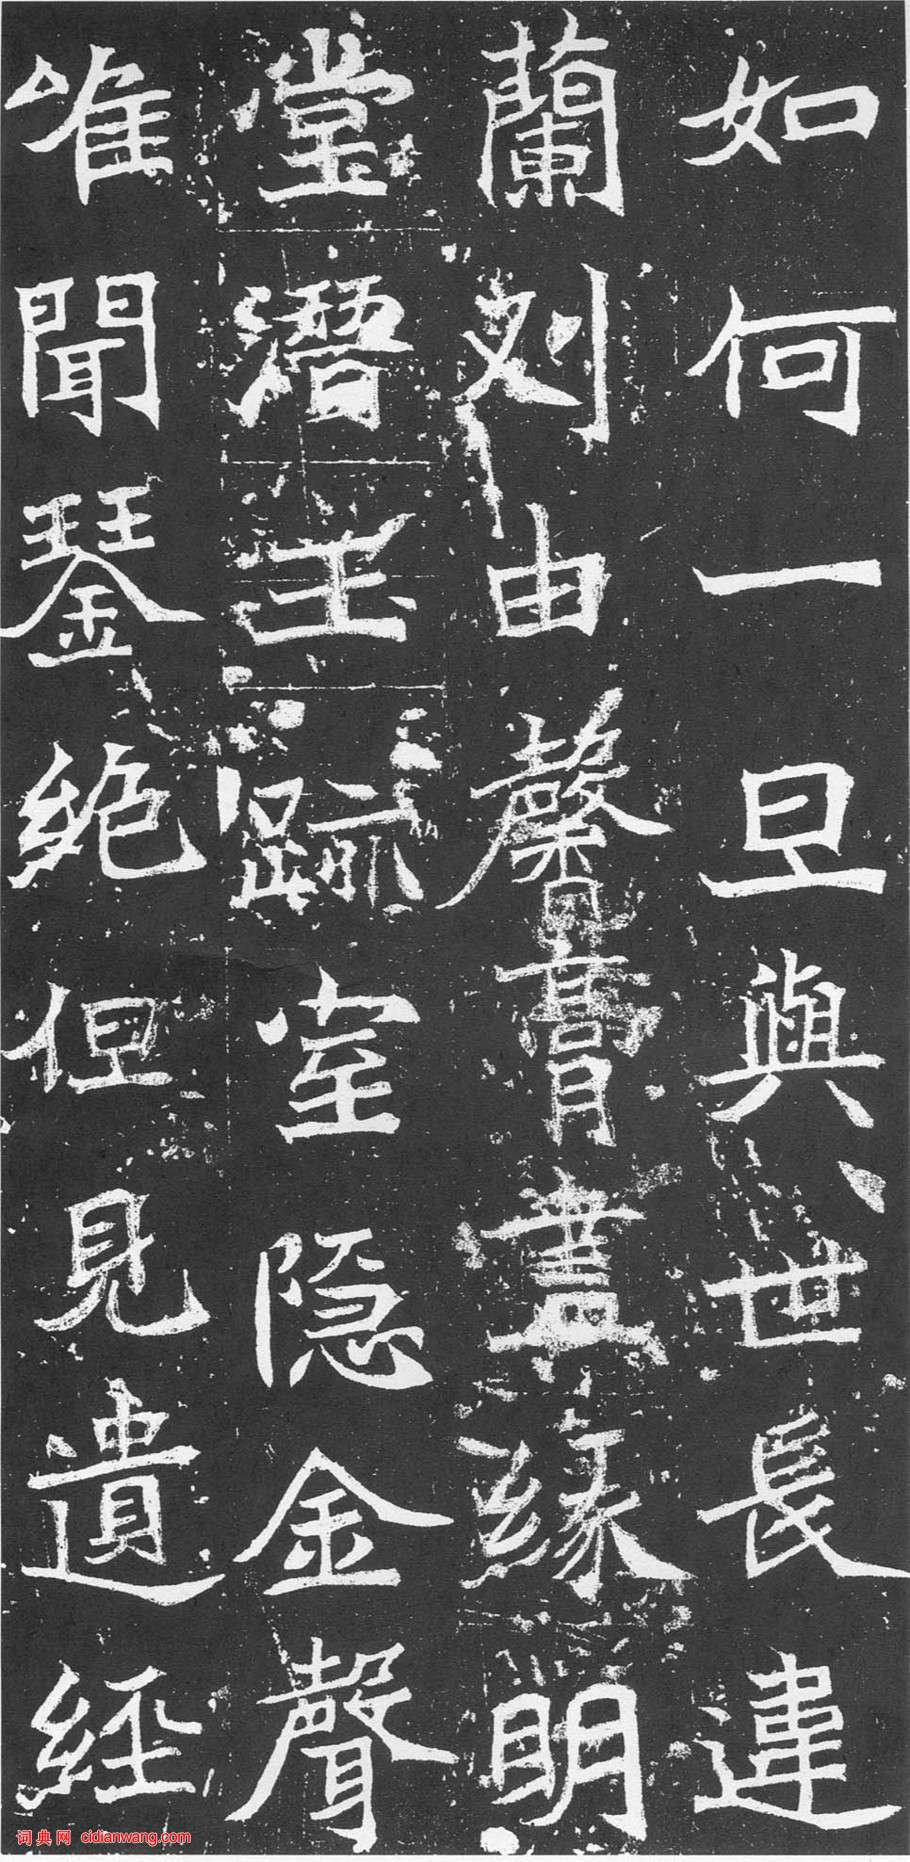 如何一旦與世長違
蘭刈由馨膏盡緣明
堂潛玉跡室隱金聲
唯聞琴絕但見遺經
词典网 cidianwang.com